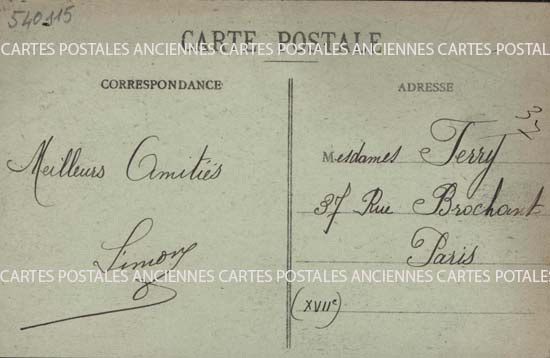 540115
CARTE POSTALE
CARTES POSTALES ANCIENNES CARTES POSTALES ANCIENNES CARTES POSTALES
CORRESPONDANCE
Meilleurs Amitiés
Simon
ADRESSE
Mesdames Terry
37 Rue Brochant
Paris
CARTES POSTALES ANCIENNES CARTES POSTALES ANCIENNES CARTES POTALES
(XVIIe)